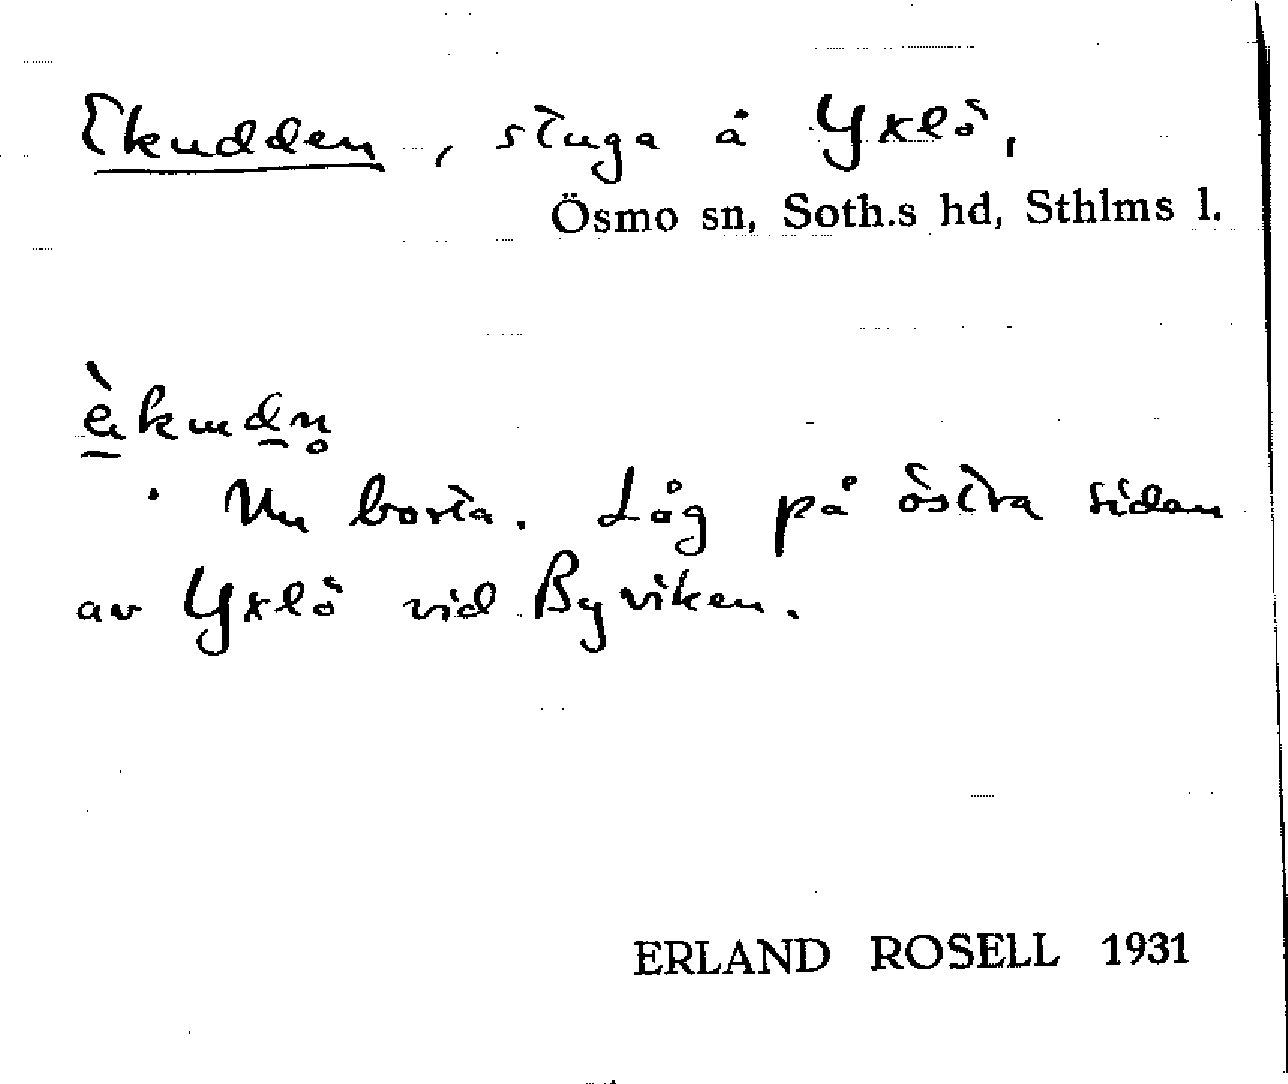 Ekudden, stuga å Yxlö,
Ösmo sn, Soth.s hd, Sthlms l.
è̱kɯḏn̥
Nu borta. Låg på östra sidan
av Yxlö vid Byviken.
ERLAND ROSELL 1931